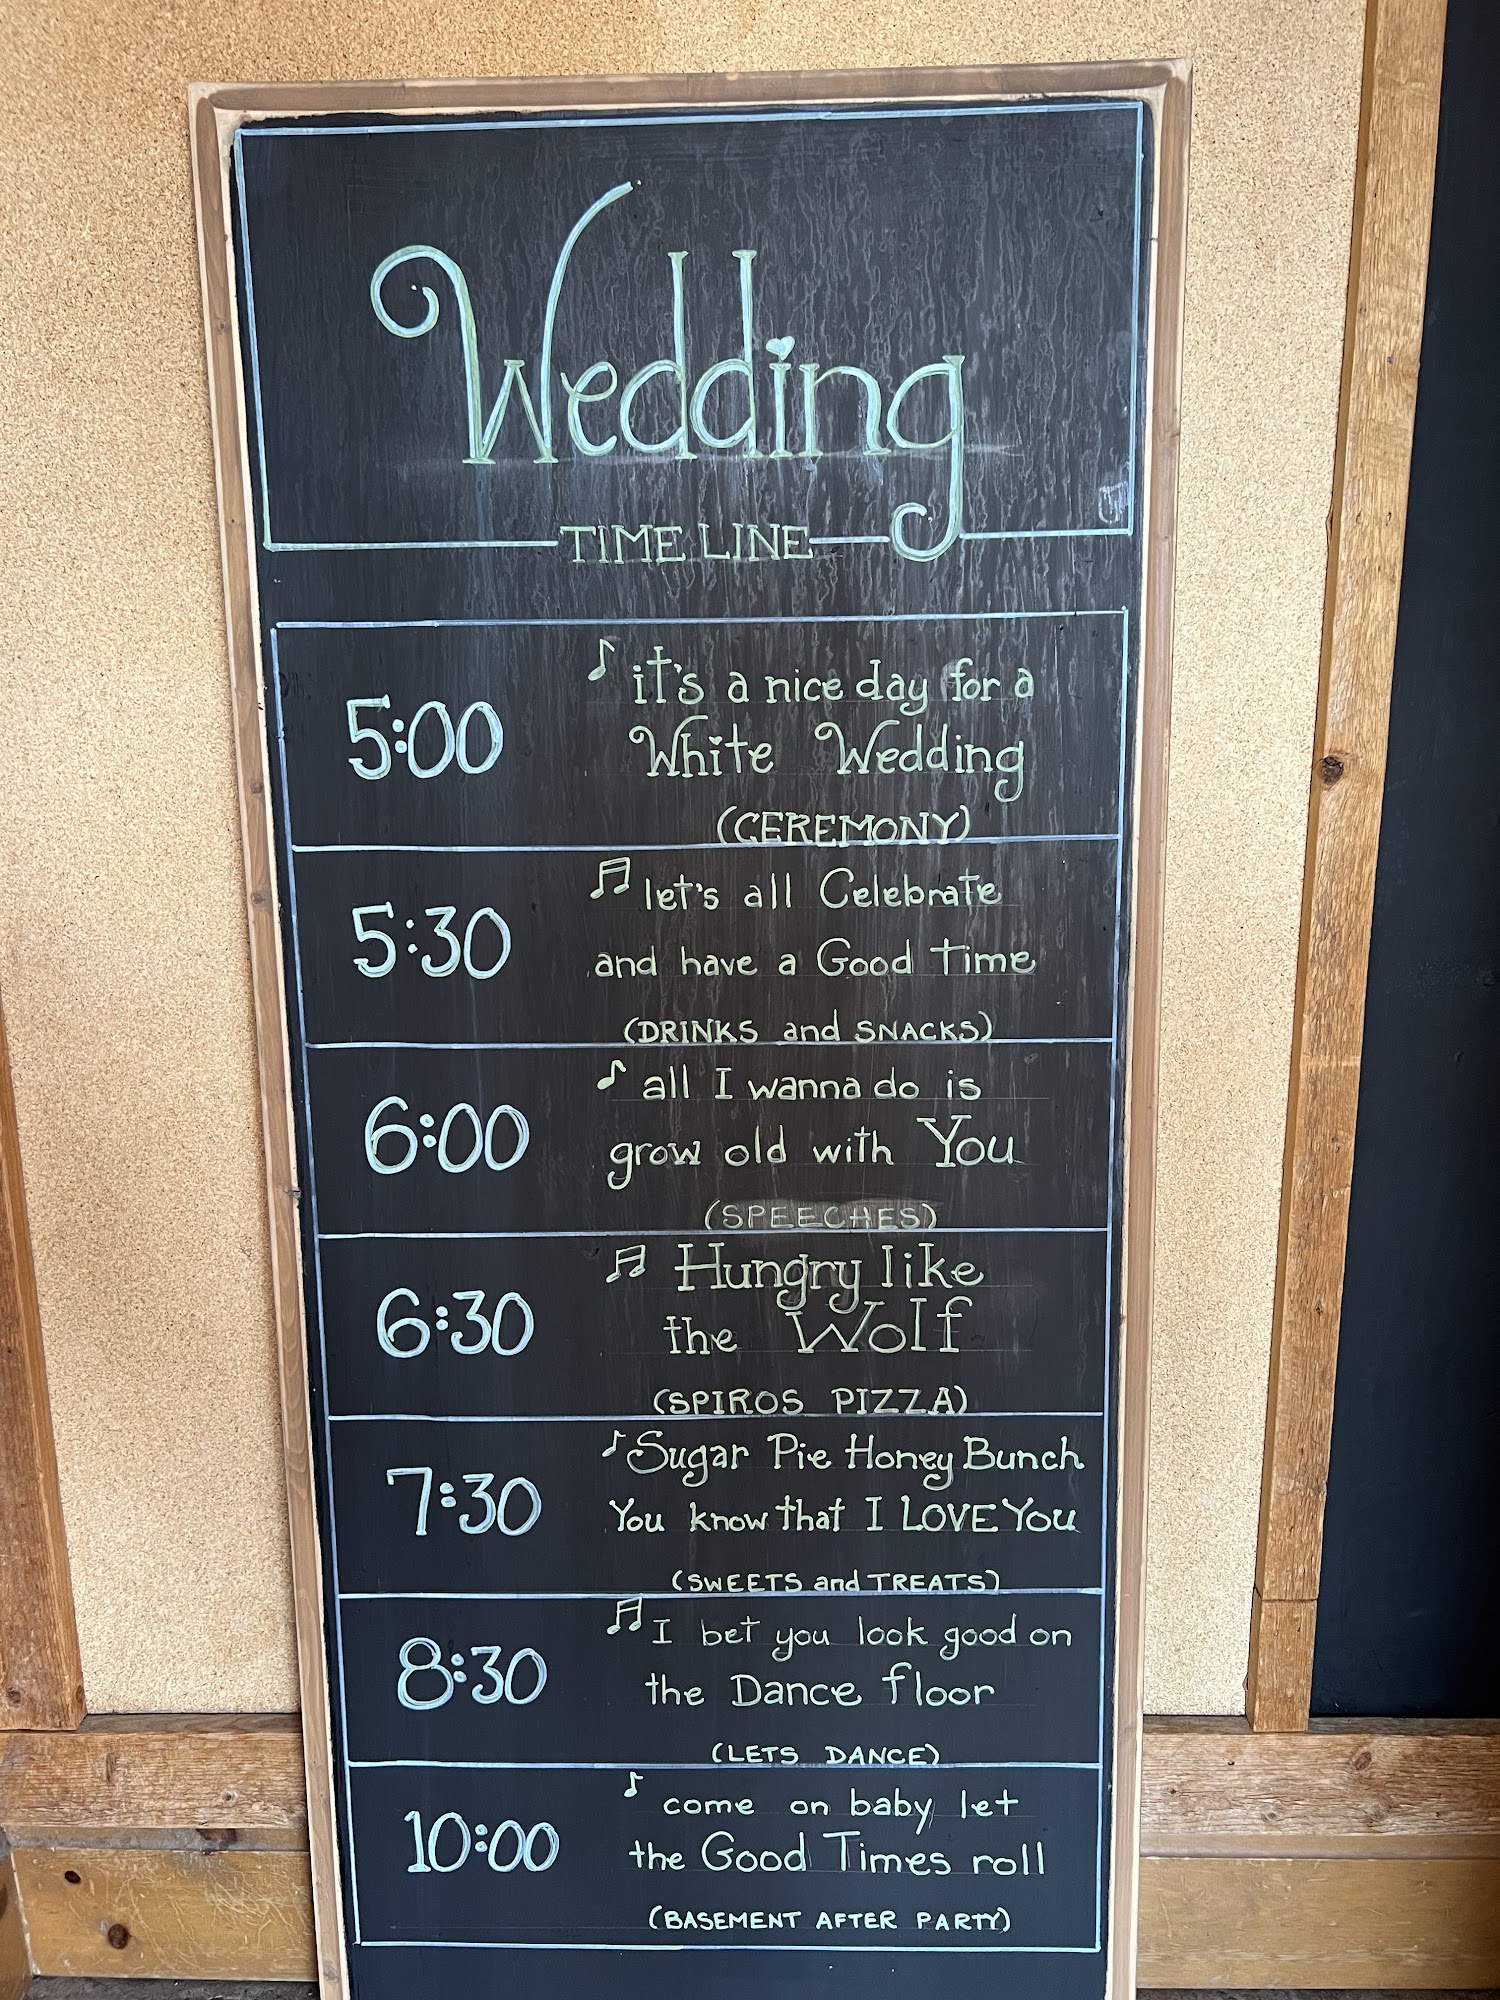 Wedding
TIME LINE
5:00
♪ it's a nice day for a
White Wedding
(CEREMONY)
5:30
♫ let's all Celebrate
and have a Good Time
(DRINKS and SNACKS)
6:00
♪ all I wanna do is
grow old with You
(SPEECHES)
6:30
♫ Hungry like
the Wolf
(SPIROS PIZZA)
7:30
♪ Sugar Pie Honey Bunch
You know that I LOVE You
(SWEETS and TREATS)
8:30
♫ I bet you look good on
the Dance floor
(LETS DANCE)
10:00
♪ come on baby let
the Good Times roll
(BASEMENT AFTER PARTY)